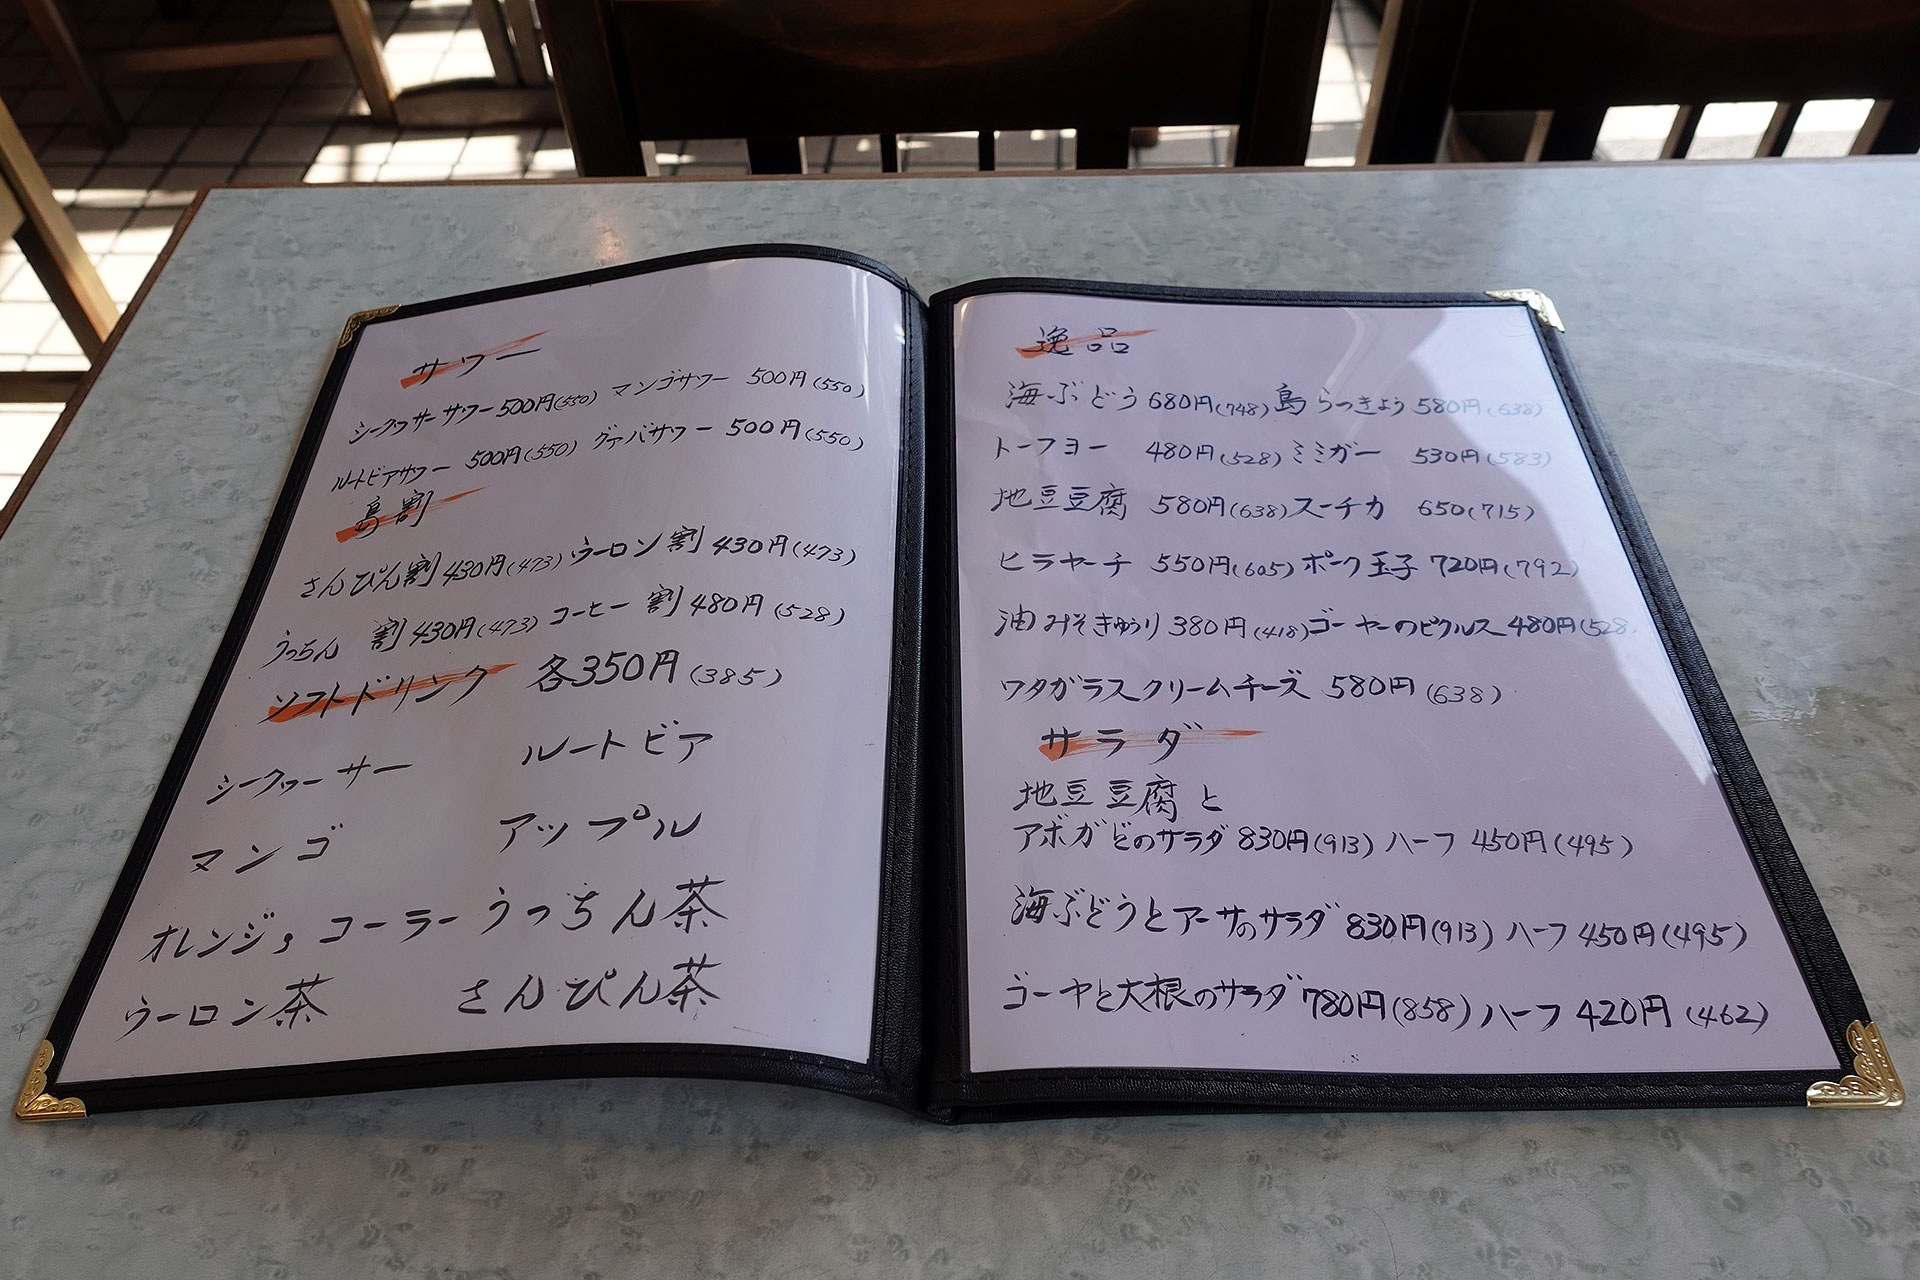 サワー
シークヮサーサワー 500円(550) マンゴサワー 500円(550)
ルートビアサワー 500円(550) グァバサワー 500円(550)
島割
さんぴん割 430円(473) ウーロン割 430円(473)
うっちん割 430円(473) コーヒー割 480円(528)
ソフトドリンク 各350円(385)
シークヮーサー ルートビア
マンゴ アップル
オレンジ, コーラー うっちん茶
ウーロン茶 さんぴん茶
逸品
海ぶどう 680円(748) 島らっきょう 580円(638)
トーフヨー 480円(528) ミミガー 530円(583)
地豆豆腐 580円(638) スーチカ 650(715)
ヒラヤーチ 550円(605) ポーク玉子 720円(792)
油みそきゅうり 380円(418) ゴーヤーのピクルス 480円(528
ワタガラスクリームチーズ 580円(638)
サラダ
地豆豆腐と
アボガどのサラダ 830円(913) ハーフ 450円(495)
海ぶどうとアーサのサラダ 830円(913) ハーフ 450円(495)
ゴーヤと大根のサラダ 780円(858) ハーフ 420円(462)